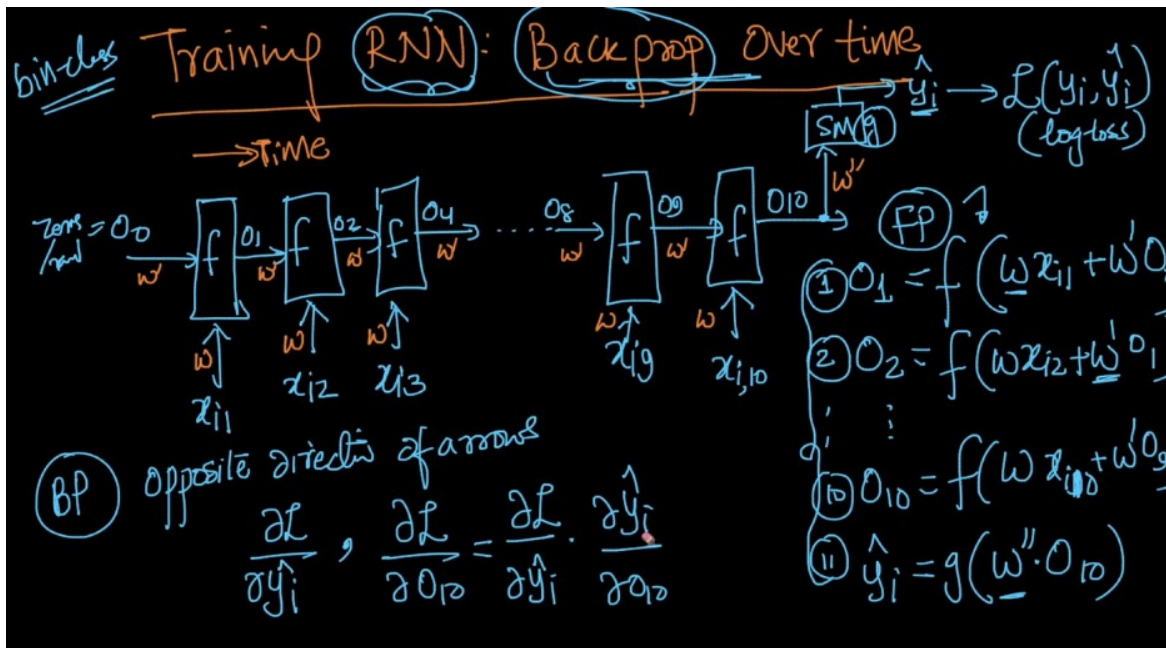 bin-class
Training RNN: Backprop Over time
→ Time
ŷi → L(yi, ŷi)
(log-loss)
SM g
w''
zeros = O0
w' f O1 w' f O2 w' f O4 w' ..... O8 w' f O9 w' f O10
w w w w w
xi1 xi2 xi3 xi9 xi,10
FP
① O1 = f(wxi1 + w'O
② O2 = f(wxi2 + w'O1
⋮
⑩ O10 = f(w xi10 + w'O9
⑪ ŷi = g(w''·O10)
BP opposite direction of arrows
∂L/∂ŷi , ∂L/∂O10 = ∂L/∂ŷi · ∂ŷi/∂O10